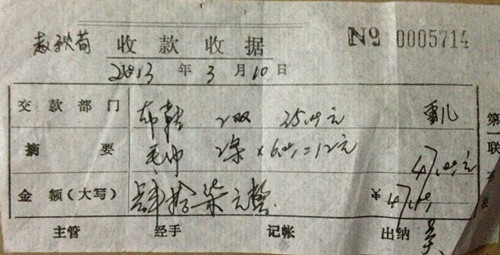 收款收据 № 0005714
2013年3月10日
交款部门 布鞋 2双 35.00元
摘要 毛巾 2条×6.00=12元 47.00元
金额(大写) 肆拾柒元整 47.00
主管 经手 记帐 出纳
第一联